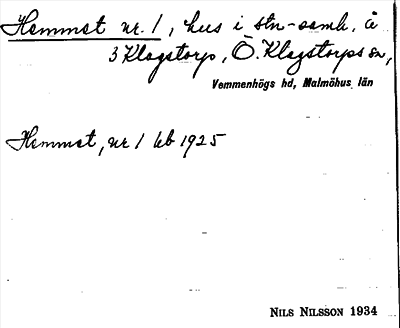 Hemmet nr. 1, hus i stn-samh. å
3 Klagstorp, Ö. Klagstorps sn,
Vemmenhögs hd, Malmöhus län
Hemmet, nr 1 kb 1925
NILS NILSSON 1934